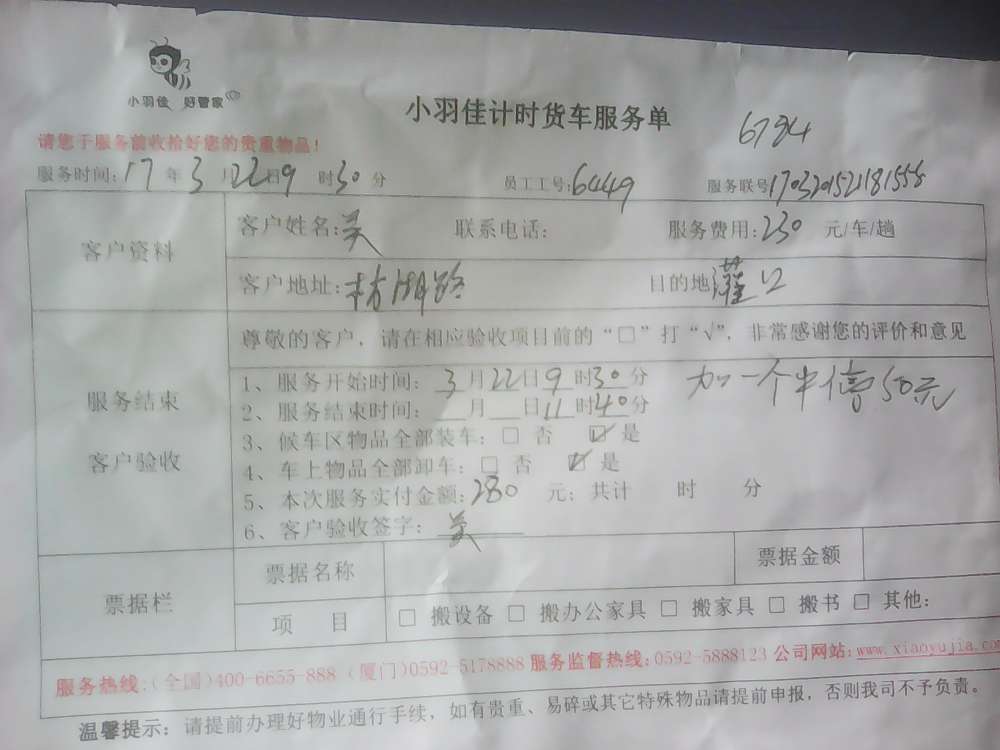 小羽佳 好管家
小羽佳计时货车服务单
6784
请您于服务前收拾好您的贵重物品！
服务时间：17年3月22日9时30分 员工工号：6449 服务联号
客户资料
客户姓名：吴 联系电话： 服务费用：230 元/车/趟
客户地址：枋湖路 目的地灌口
服务结束
客户验收
尊敬的客户，请在相应验收项目前的“□”打“√”，非常感谢您的评价和意见
1、服务开始时间：3月22日9时30分
加一个半停50元
2、服务结束时间： 月 日11时40分
3、候车区物品全部装车：□ 否 ☑ 是
4、车上物品全部卸车：□ 否 ☑ 是
5、本次服务实付金额：280 元；共计 时 分
6、客户验收签字：吴
票据栏
票据名称 票据金额
项 目 □ 搬设备 □ 搬办公家具 □ 搬家具 □ 搬书 □ 其他：
服务热线：（全国）400-6655-888（厦门）0592-5178888 服务监督热线：0592-5888123 公司网站：www.xiaoyujia.co
温馨提示：请提前办理好物业通行手续，如有贵重、易碎或其它特殊物品请提前申报，否则我司不予负责。